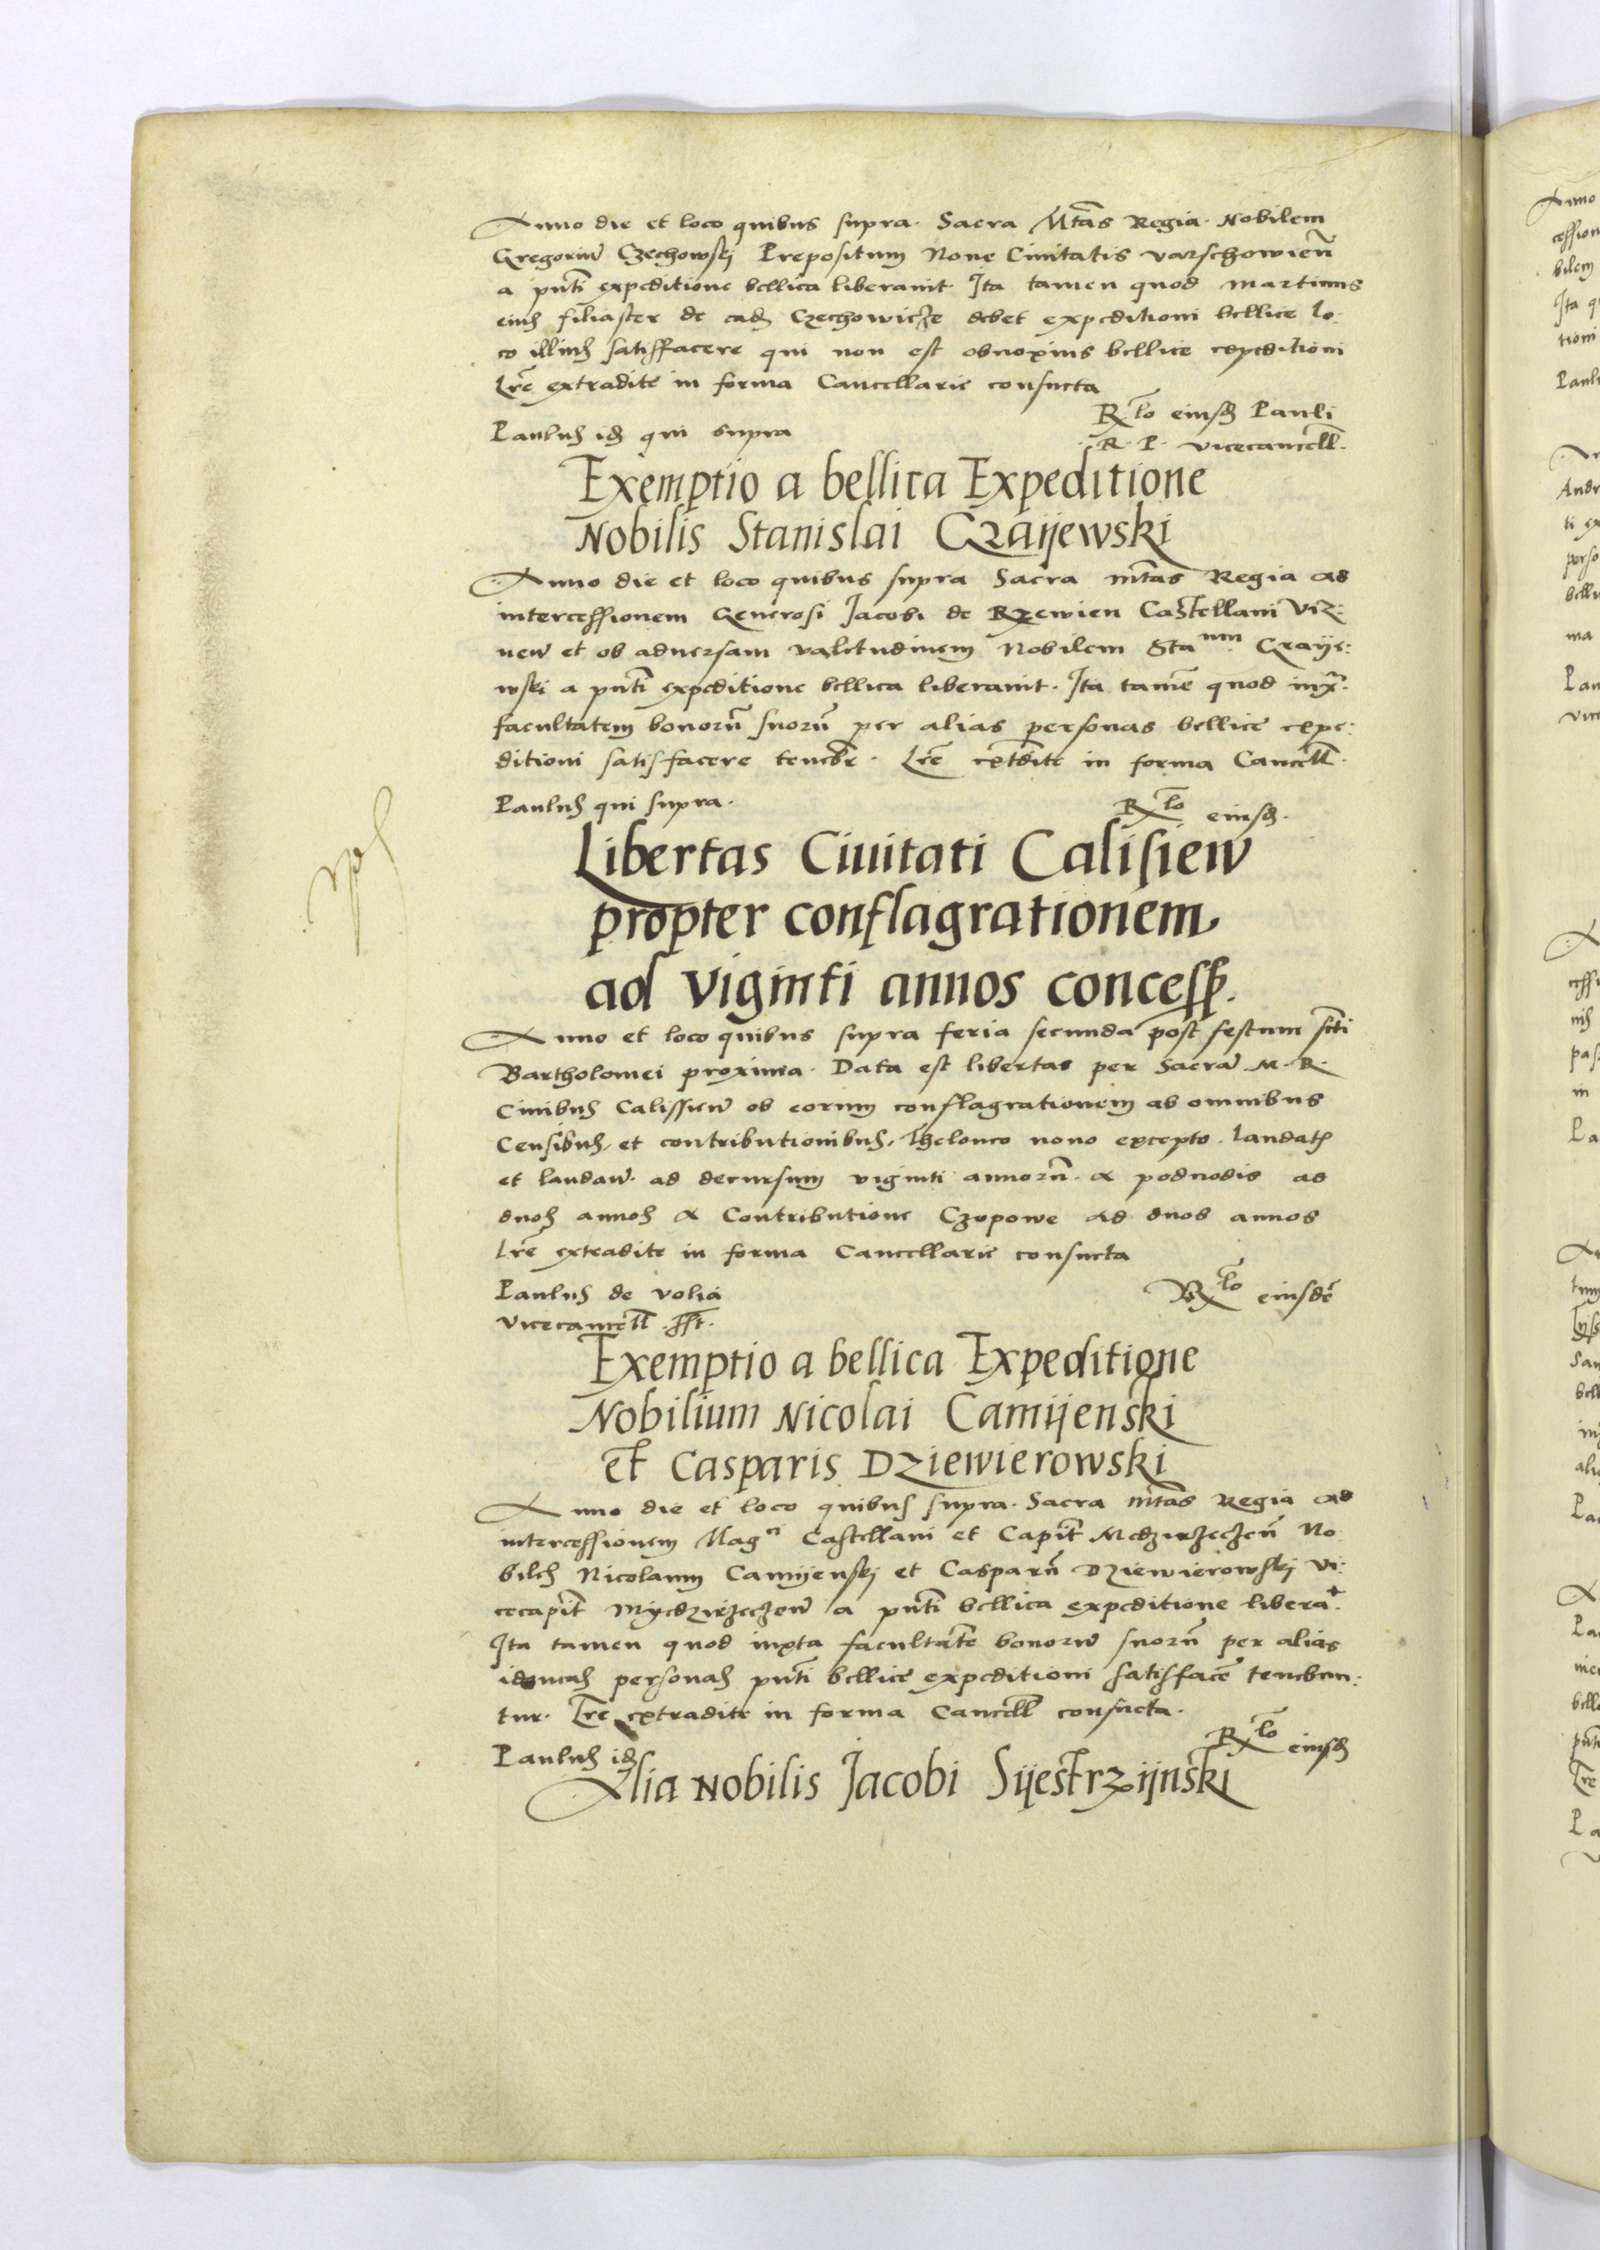 Anno die et loco quibus supra. Sacra Mtās Regia. Nobilem
Gregoriū Czechowskj Prepositum None Ciuitatis varschowień
a pn̄ti expeditione bellica liberauit. Ita tamen quod martinus
eiuꝫ filiaster de eadꝫ Czechowicze debet expeditioni bellice lo:
co illiuꝫ satisfacere qui non est obnoxius bellice expeditioni
Lr̄e extradite in forma Cancellarie consueta
Rl̄o eiusdꝫ Pauli
Pauluꝫ idꝫ qui supra
R. P. vicecancell̄.
Exemptio a bellica Expeditione
Nobilis Stanislai Czaijewski
Anno die et loco quibus supra Sacra mt̄as Regia ad
intercessionem Generosi Jacobi de Rzewien Castellani Viz:
neń et ob aduersam valetudinem Nobilem Sta num. Czaije:
wski a pn̄ti expeditione bellica liberauit. Ita tamē quod iuxᷓ.
facultatem bonorū suorū per alias personas bellice expe:
ditioni satisfacere teneb̄r. Lr̄e extd̄ite in forma Cancell̄.
Pauluꝫ qui supra.
Rl̄o eiusdꝫ.
Libertas Ciuitati Calisień
propter conflagrationem
ad viginti annos concess̄.
Anno et loco quibus supra feria secunda post festum scti
Bartholomei proxima. Data est libertas per Sacrā M. R.
Ciuibuꝫ Calissień ob eorum conflagrationem ab omnibus
Censibuꝫ, et contributionibuꝫ, Theloneo nouo excepto. laudatꝫ
et laudań. ad decursum viginti annorū. a podnodis ad
duoꝫ annoꝫ a Contributione Czopowe ad duos annos
Lr̄e extradite in forma Cancellarie consueta
Pauluꝫ de volia
Rl̄o eiusdē
vicecancell̄ sst.
Exemptio a bellica Expeditione
Nobilium Nicolai Camijenski
et Casparis Dziewierowski
Anno die et loco quibuꝫ supra. Sacra mt̄as Regia ad
intercessionem Mag ci Castellani et Capit̄ Medzirzeczeń No:
bileꝫ Nicolaum Camijenskj et Casparū Dziewierowskj vi:
cecapit̄ Myedzirzeczeń a pn̄ti bellica expeditione libera t.
Ita tamen quod iuxta facultatē bonorū suorū per alias
idoneaꝫ personaꝫ pn̄ti bellice expeditioni satisfacē tenebun:
tur. Lr̄e extradite in forma Cancell̄ consueta.
Rl̄o eiusdꝫ
Pauluꝫ idꝫ
Alia Nobilis Jacobi Sijestrzijnski